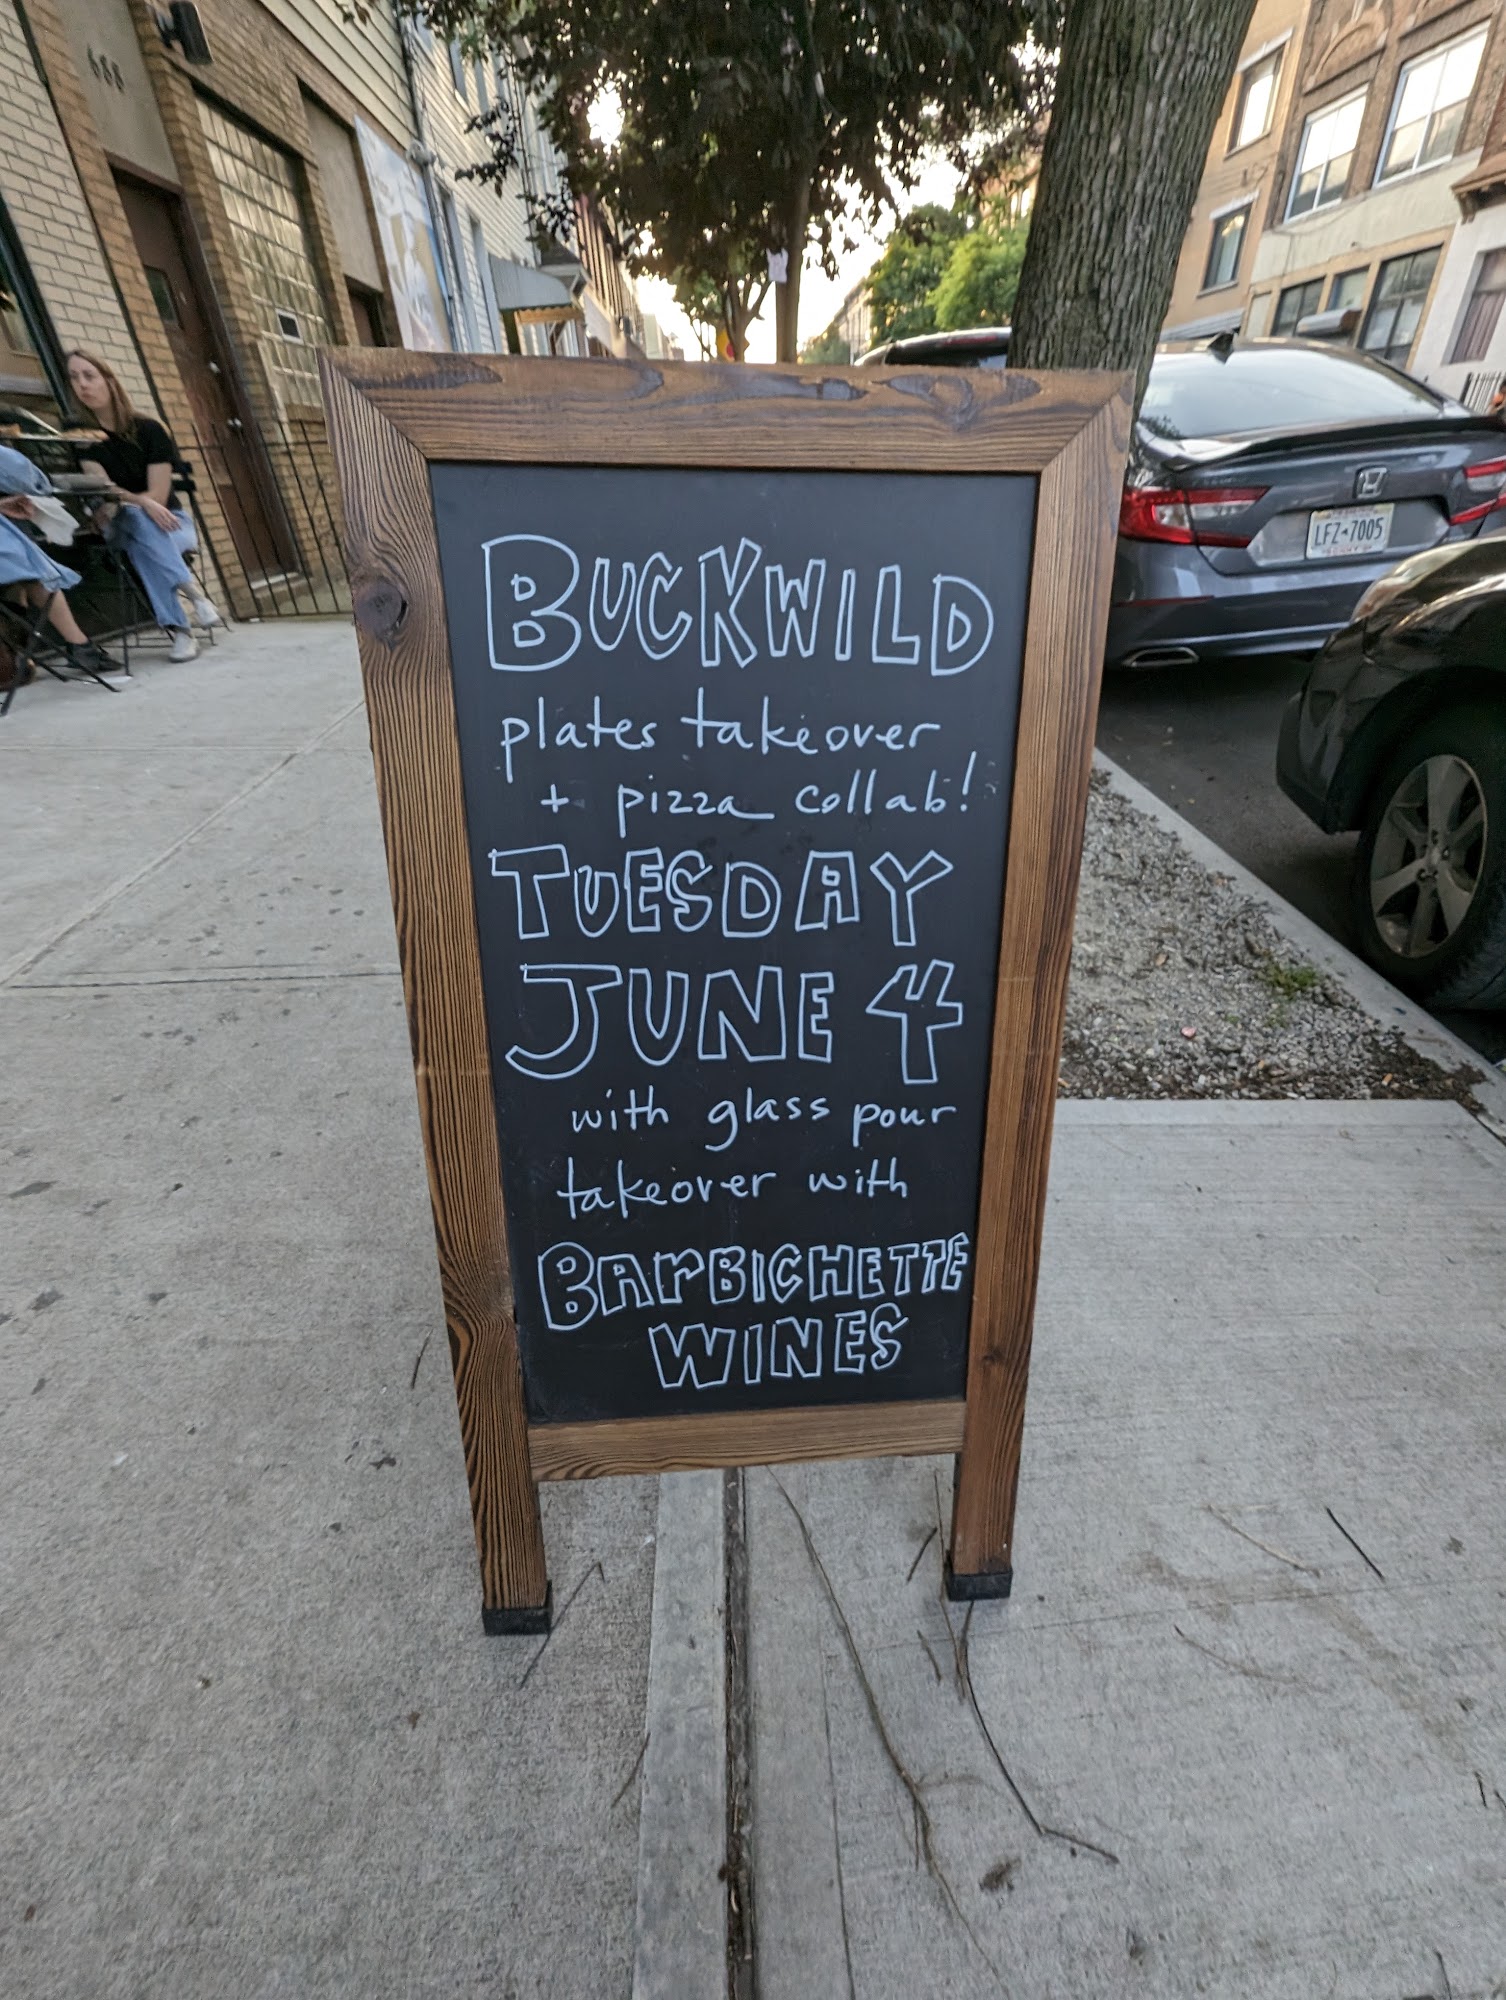 BUCKWILD
plates takeover
+ pizza collab!
TUESDAY
JUNE 4
with glass pour
takeover with
BArBICHETTE
WINES
688
LFZ 7005